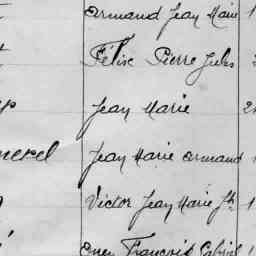 Armand Jean Marie 1
Félix Pierre Jules
Jean Marie 2
Jean Marie Armand
Victor Jean Marie Jh 1
François Gabriel 1